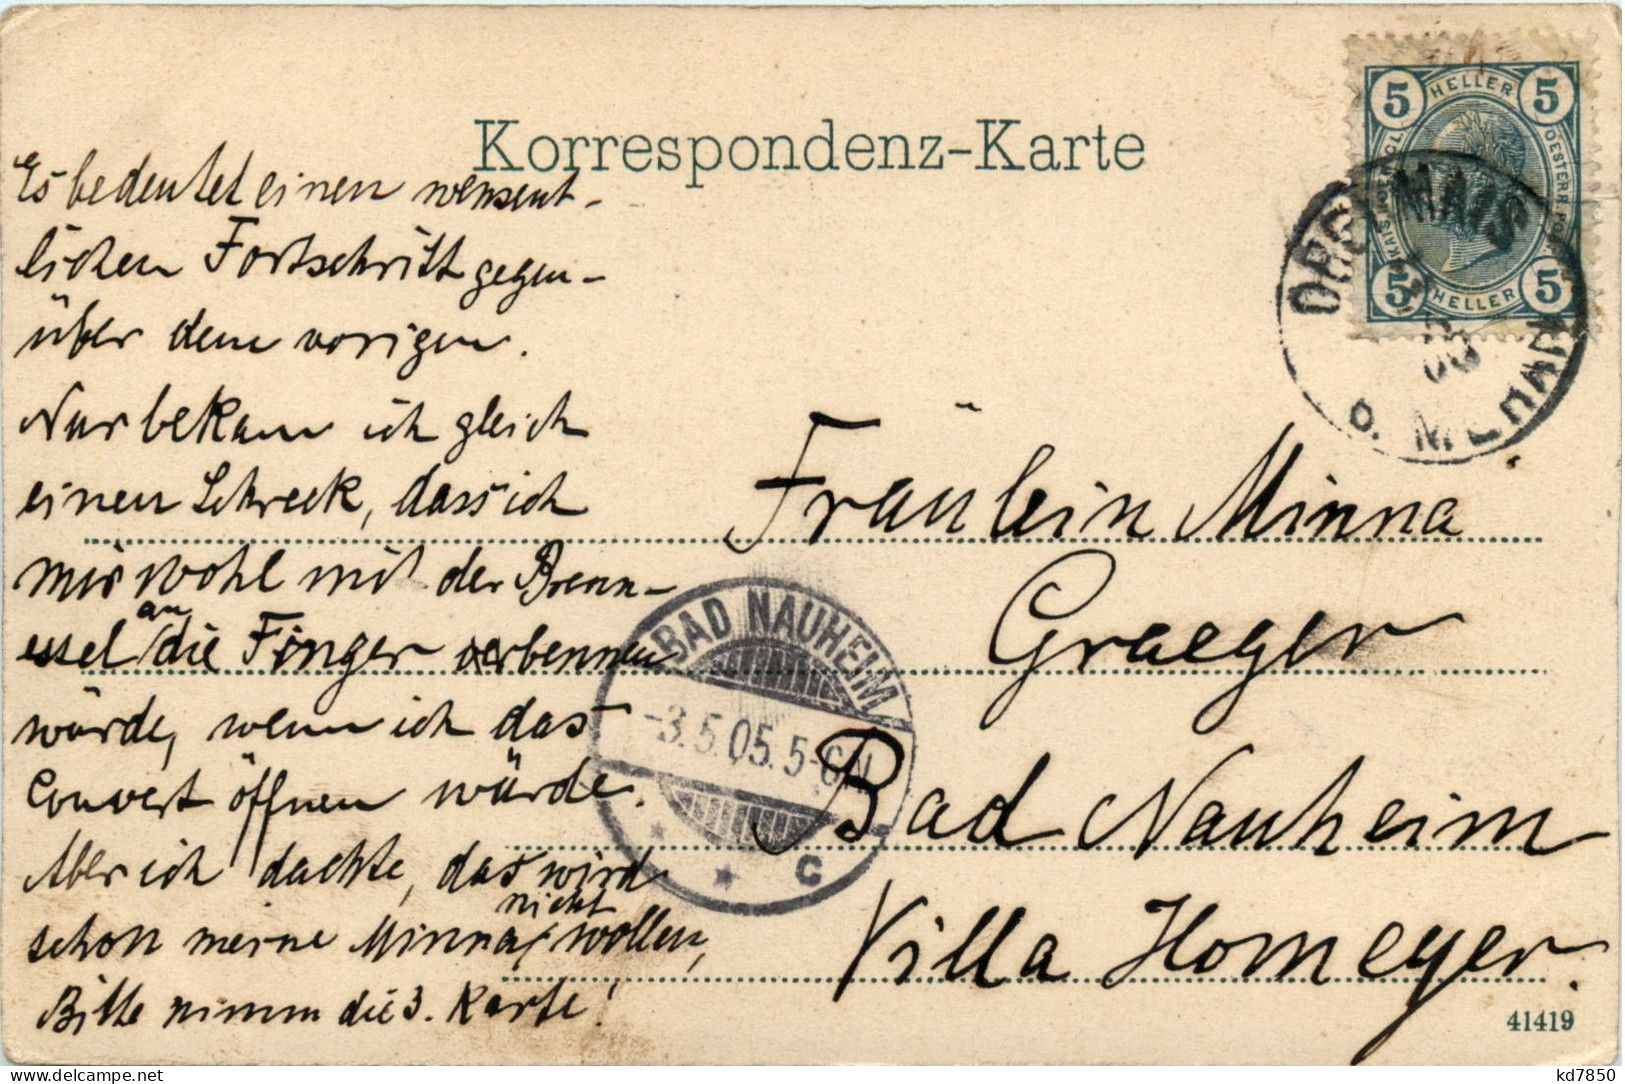 Korrespondenz-Karte
5 HELLER 5
KAIS. KOENIGL.
OESTERR. POST
5 HELLER 5
OBERMAIS
b. MERAN
Es bedeutet einen wesent-
lichen Fortschritt gegen-
über dem vorigen.
Nur bekam ich gleich
einen Schreck, dass ich
mir wohl mit der Brenn-
essel an die Finger verbennen
würde, wenn ich das
Couvert öffnen würde.
Aber ich dachte, das wird
schon meine Minna nicht wollen,
Bitte nimm die 3. Karte!
Fräulein Minna
Graeger
Bad Nauheim
Villa Homeyer.
BAD NAUHEIM
-3.5.05. 5-6N
* * C
41419
kd7850